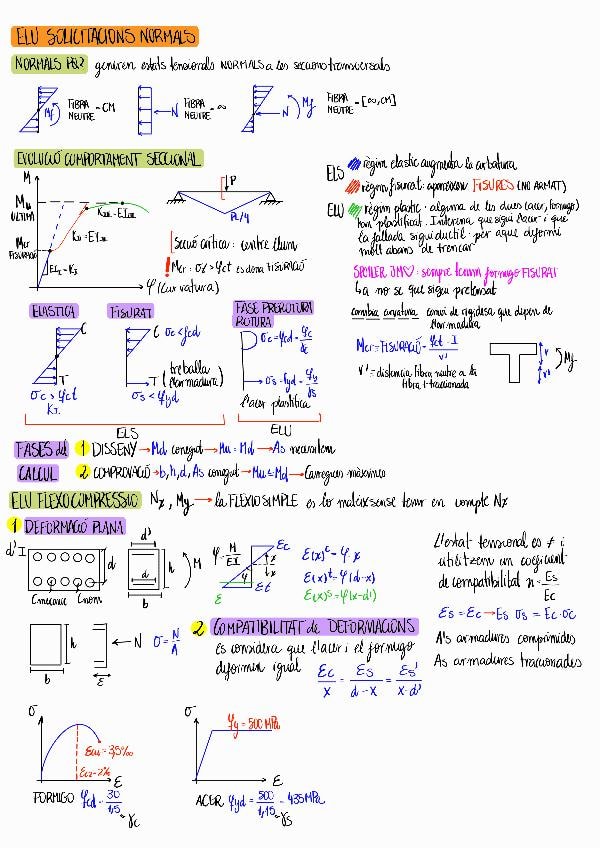 ELU SOLICITACIONS NORMALS
NORMALS P6.2 generen estats tensionals NORMALS a les seccions transversals
Mf FIBRA NEUTRE = CM
N FIBRA NEUTRE = ∞
N Mf FIBRA NEUTRE = [∞, CM]
EVOLUCIÓ COMPORTAMENT SECCIONAL
M
Mu ÚLTIMA
Mcr FISURACIÓ
φ (curvatura)
P
PL/4
Secció crítica: centre llum
! Mcr: σt > fct es dona FISURACIÓ
ELS règim elastic augmenta la curvatura
règim fisurat: apareixen FISURES (NO ARMAT)
ELU règim plastic: alguna de les dues (acer, formigo)
hem plastificat. Interesa que sigui l'acer i que
la fallada sigui ductil: per aque deformi
molt abans de trencar
SPOILER JM♡: sempre tenim formigo FISURAT
↳ a no se que sigui pretensat
canvia curvatura canvi de rigidesa que depen de
l'armadura
Mcr = FISURACIÓ = fct · I / v'
v' = distancia fibra neutre a la
fibra + traccionada
v
v'
My
ELASTICA
C
T
σc > fct
FISURAT
C σc < fcd
(treballa l'armadura)
T
σs < fyd
FASE PRERUTURA ROTURA
σc = fcd = fc/γc
σs = fyd = fy/γs
l'acer plastifica
ELS
ELU
FASES del CALCUL
1 DISSENY → Md conegut → Mu = Md → As necessitem
2 COMPROVACIÓ → b, h, d, As conegut → Mu ≤ Md → Carregues màximes
ELU FLEXOCOMPRESSIO Nx, My → la FLEXIO SIMPLE es lo mateix sense tenir en compte Nx
1 DEFORMACIÓ PLANA
d' d
Cmecanic Cnom
d'
d
b
h
M
φ = M/EI
εc
x
z
φ
ε εt
ε(x)ᶜ = φ x
ε(x)ᵗ = φ(d-x)
ε(x)ˢ = φ(x-d')
L'estat tensional es ≠ i
utilitzem un coeficient
de compatibilitat n = Es/Ec
εs = εc → Es σs = Ec · σc
A's armadures comprimides
As armadures traccionades
h
b
ε
N
σ = N/A
2 COMPATIBILITAT de DEFORMACIONS
es considera que l'acer i el formigo
deformen igual
εc/x = εs/d-x = εs'/x-d'
σ
εcu = 3,5‰
εc2 = 2‰
ε
FORMIGO fcd = 30/1,5 = γc
σ
fy = 500 MPa
ε
ACER fyd = 500/1,15 = 435 MPa
γs